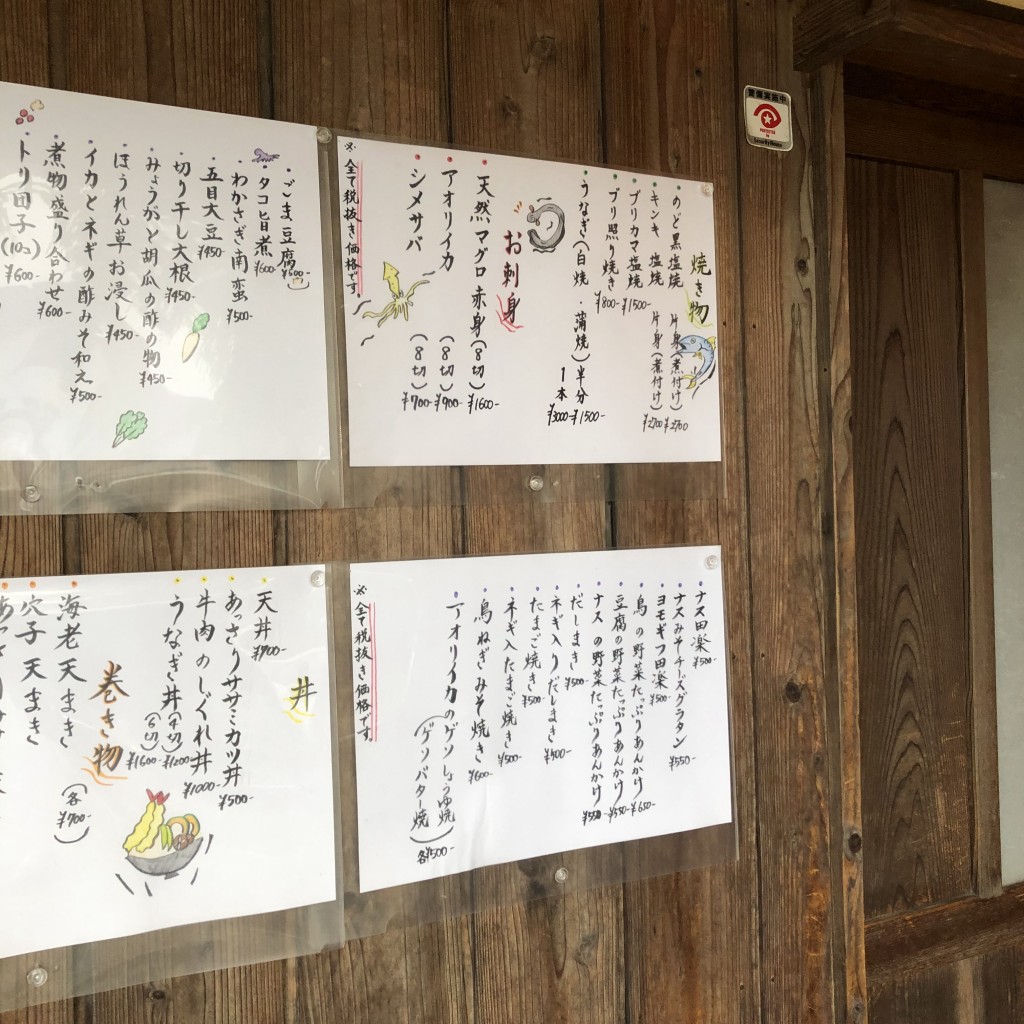 ・ごま豆腐 ¥600-
・タコ旨煮 ¥600-
・わかさぎ南蛮 ¥500-
・五目大豆 ¥450
・切り干し大根 ¥450-
・みょうがと胡瓜の酢の物 ¥450-
・ほうれん草お浸し ¥450-
・イカとネギの酢みそ和え ¥500-
・煮物盛り合わせ ¥600-
・トリ団子(10コ) ¥600-
焼き物
・のど黒塩焼 片身(煮付け) ¥2700
・キンキ 塩焼 片身(煮付け) ¥2700
・ブリカマ塩焼 ¥1500-
・ブリ照り焼き ¥800-
・うなぎ(白焼・蒲焼) 半分 ¥1500-
1本 ¥3000-
お刺身
・天然マグロ赤身(8切) ¥1600-
・アオリイカ (8切) ¥900-
・シメサバ (8切) ¥700-
※全て税抜き価格です。
警備実施中
丼
・天丼 ¥900-
・あっさりササミカツ丼 ¥500-
・牛肉のしぐれ丼 ¥1000-
・うなぎ丼(4切) ¥1200-
(6切) ¥1600-
巻き物
・海老天まき
・穴子天まき
(各¥700-)
・ナス田楽 ¥500-
・ナスみそチーズグラタン ¥550-
・ヨモギフ田楽 ¥500-
・鳥の野菜たっぷりあんかけ ¥650-
・豆腐の野菜たっぷりあんかけ ¥550-
・ナスの野菜たっぷりあんかけ ¥550-
・だしまき ¥500-
・ネギ入りだしまき ¥500-
・たまご焼き ¥500-
・ネギ入たまご焼き ¥500-
・鳥ねぎみそ焼き ¥600-
・アオリイカのゲソしょうゆ焼
(ゲソバター焼) 各¥500-
※全て税抜き価格です。